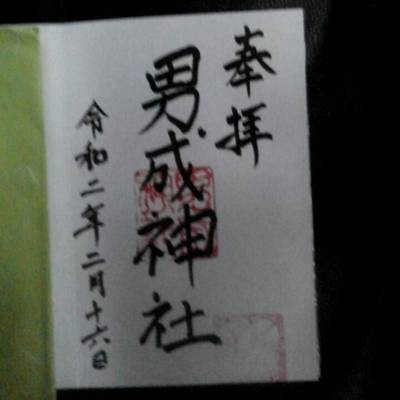 奉拝
男成神社
令和二年二月十六日